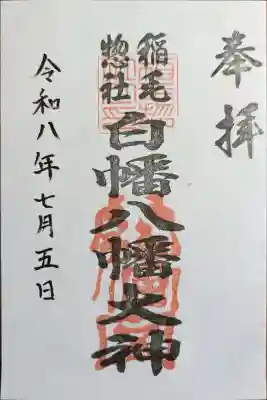 奉拝
稲毛
惣社
白幡八幡大神
令和八年七月五日